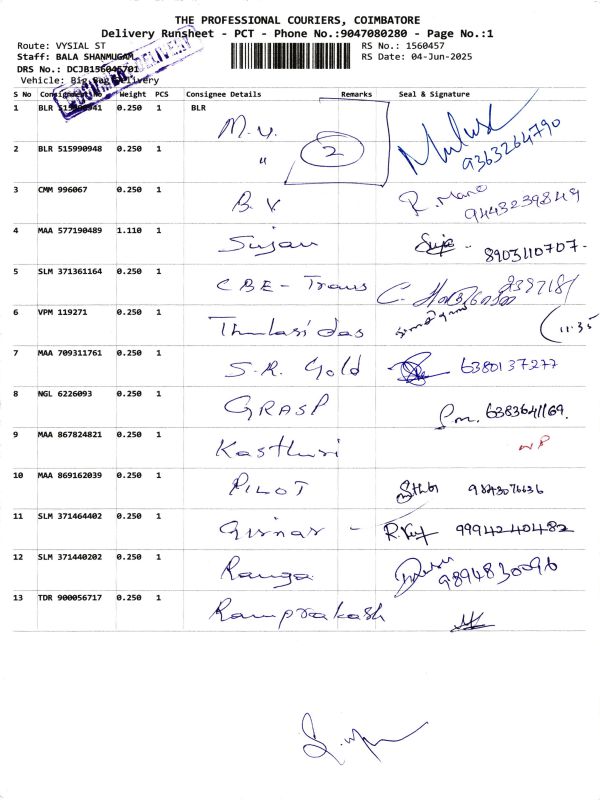 THE PROFESSIONAL COURIERS, COIMBATORE
Delivery Runsheet - PCT - Phone No.:9047080280 - Page No.:1
Route: VYSIAL ST RS No.: 1560457
Staff: BALA SHANMUGAM RS Date: 04-Jun-2025
DRS No.:
Vehicle: Big Bag Delivery
S No Consignment No Weight PCS Consignee Details Remarks Seal & Signature
1 BLR 0.250 1 BLR
M.y. 9363264790
2 BLR 515990948 0.250 1 " 2
3 CMM 996067 0.250 1 B.V. R. Mano 9443239849
4 MAA 577190489 1.110 1 Sujan 8903110707-
5 SLM 371361164 0.250 1 CBE-Trans C.
6 VPM 119271 0.250 1 Thulasidas (11:35
7 MAA 709311761 0.250 1 S.R. Gold 6380137277
8 NGL 6226093 0.250 1 GRASP 6383641169.
9 MAA 867824821 0.250 1 Kasthuri NP
10 MAA 869162039 0.250 1 PILOT 9843076636
11 SLM 371464402 0.250 1 Girnar - 9994240482
12 SLM 371440202 0.250 1 Ranga 9894830096
13 TDR 900056717 0.250 1 Ramprakash